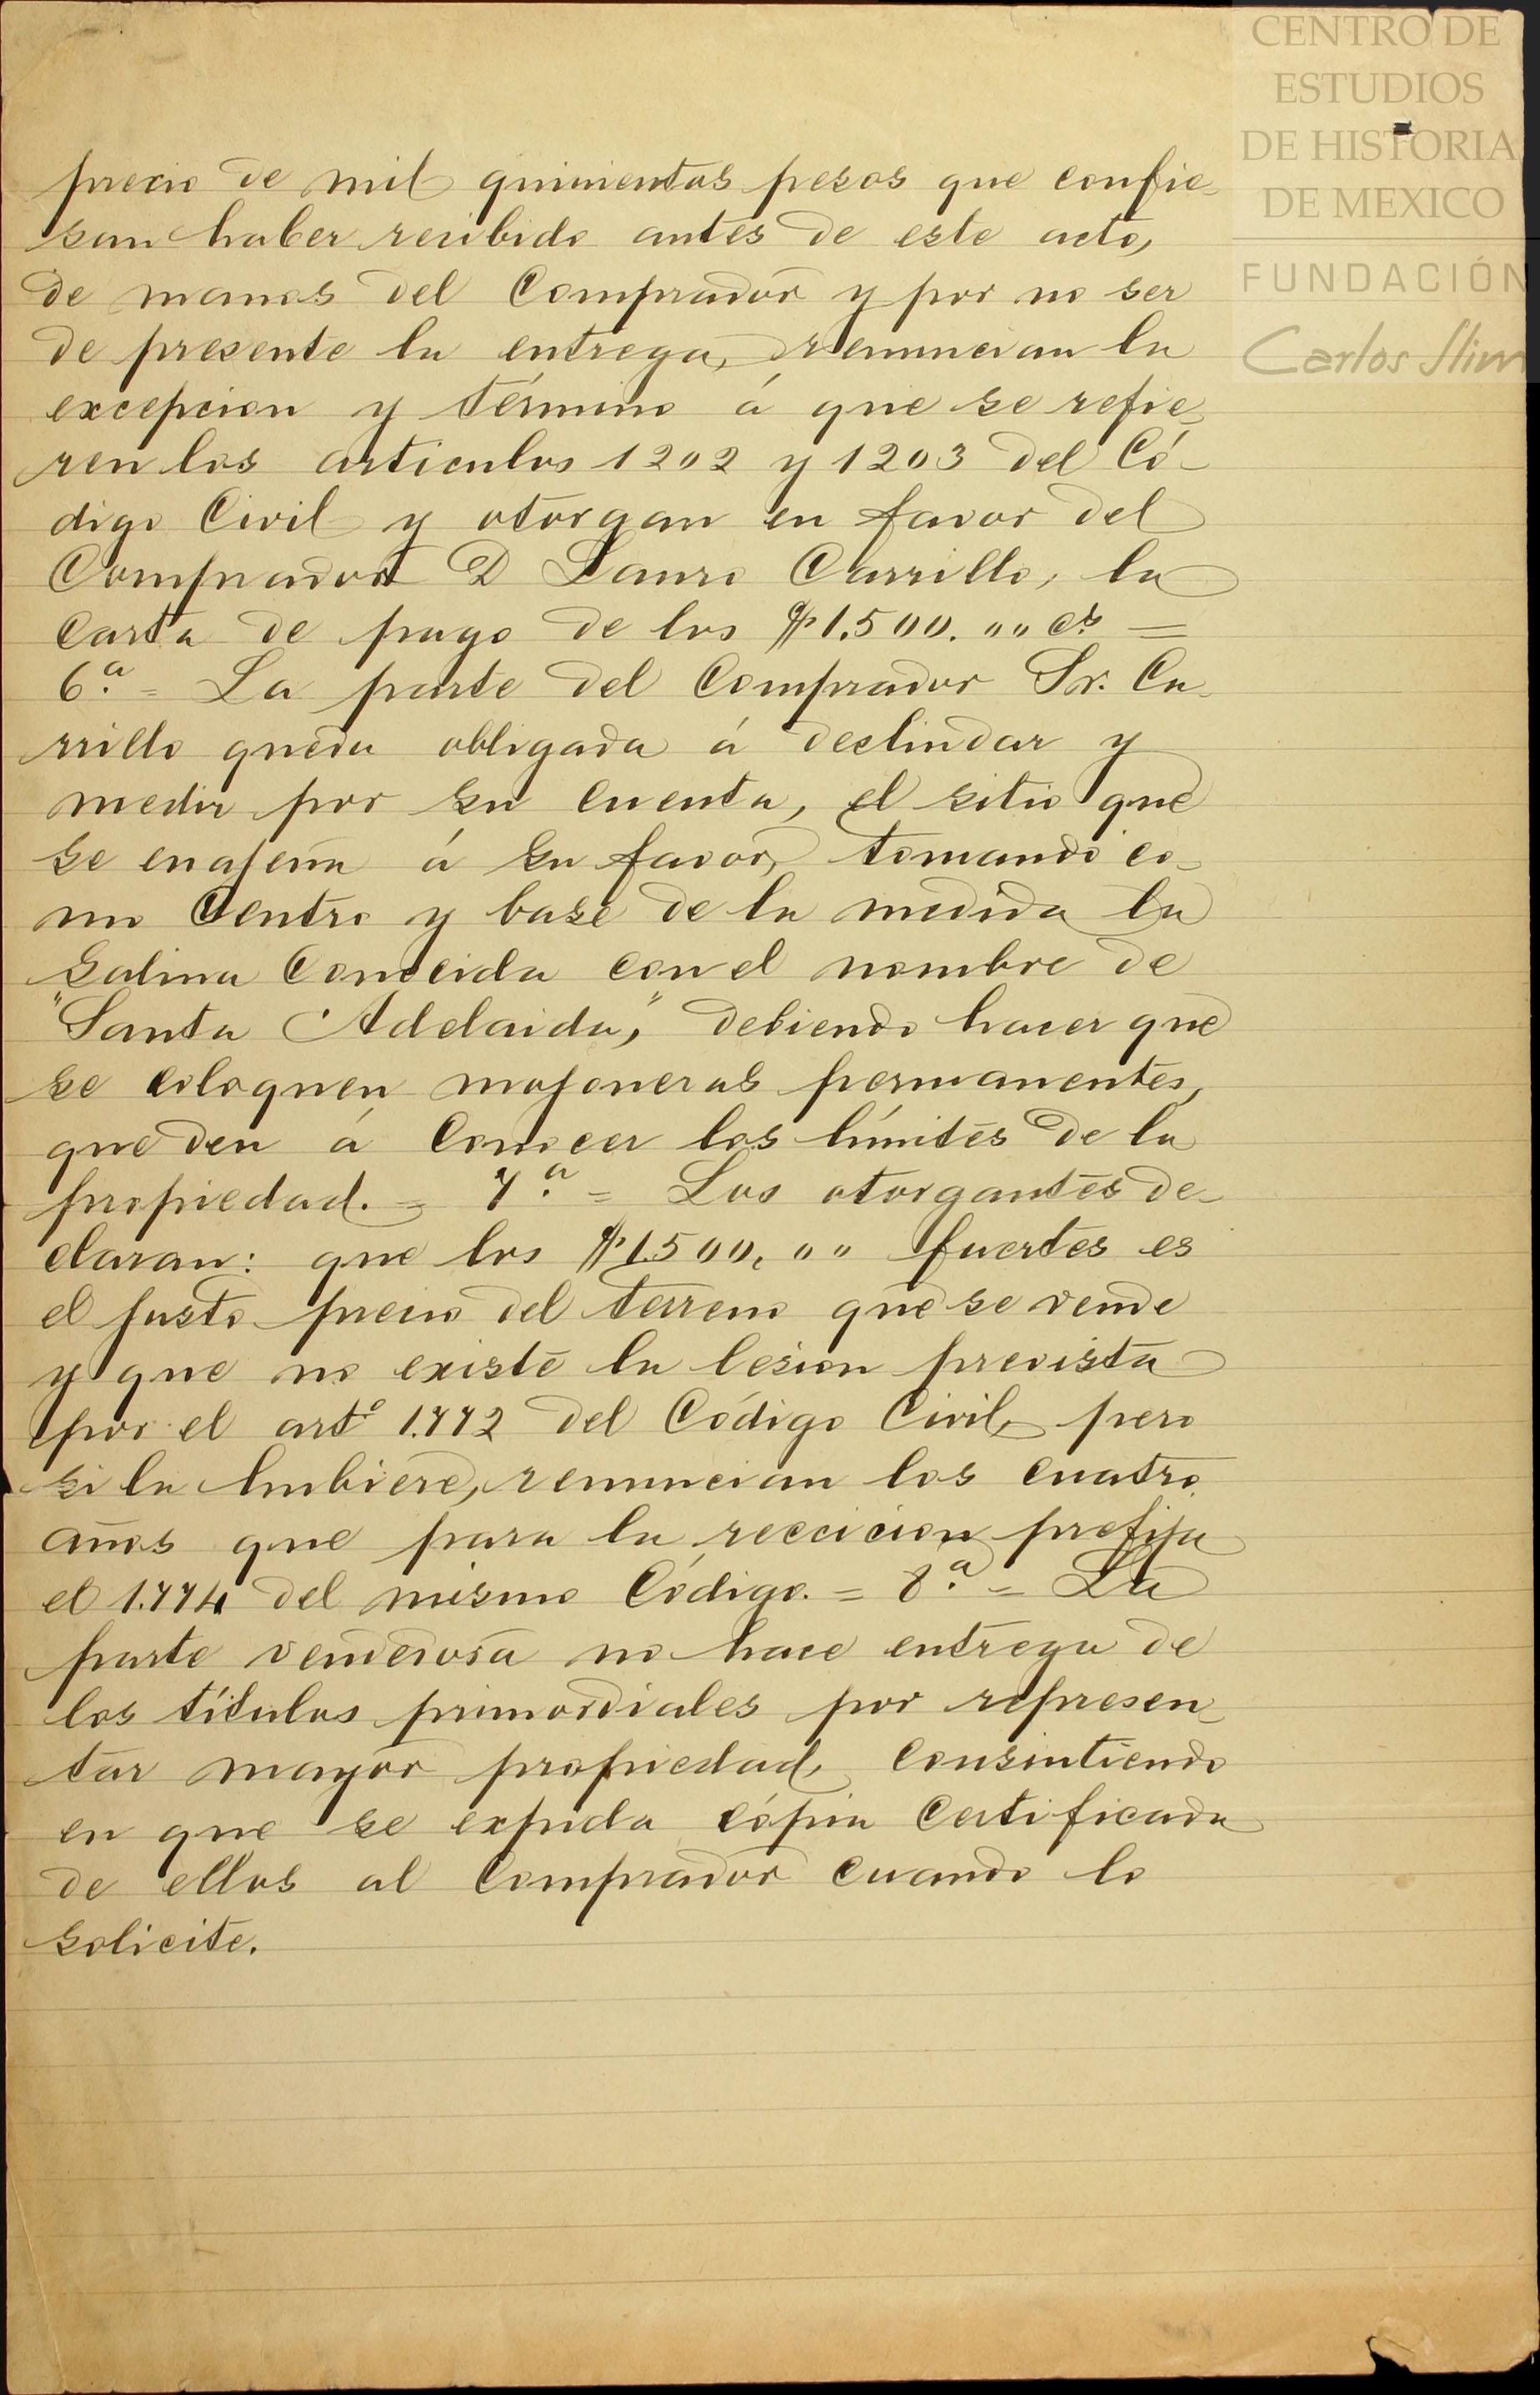 CENTRO DE
ESTUDIOS
DE HISTORIA
DE MEXICO
FUNDACIÓN
Carlos Slim
precio de mil quinientos pesos que confie-
san haber recibido antes de este acto,
de manos del Comprador y por no ser
de presente la entrega, renuncian la
excepcion y término á que se refie-
ren los articulos 1202 y 1203 del Có-
digo Civil y otorgan en favor del
Comprador D Lauro Carrillo, la
Carta de pago de los $1.500. "" cs. =
6.a = La parte del Comprador Sr. Ca-
rrillo queda obligada á deslindar y
medir por su cuenta, el sitio que
se enajena á su favor, tomando co-
mo Centro y base de la medida la
Salina Conocida con el nombre de
"Santa Adelaida," debiendo hacer que
se coloquen mojoneras permanentes,
que den á Conocer los límites de la
propiedad. = 7.a = Los otorgantes de-
claran: que los $1.500, "" fuertes es
el justo precio del terreno que se vende
y que no existe la lesion prevista
por el arto 1.772 del Código Civil, pero
si la hubiere, renuncian los cuatro
años que para la reccicion prefija
el 1.774 del mismo Código. = 8.a = La
parte vendedora no hace entrega de
los títulos primordiales por represen-
tar mayor propiedad, Consintiendo
en que se expida cópia Certificada
de ellos al Comprador cuando lo
solicite.